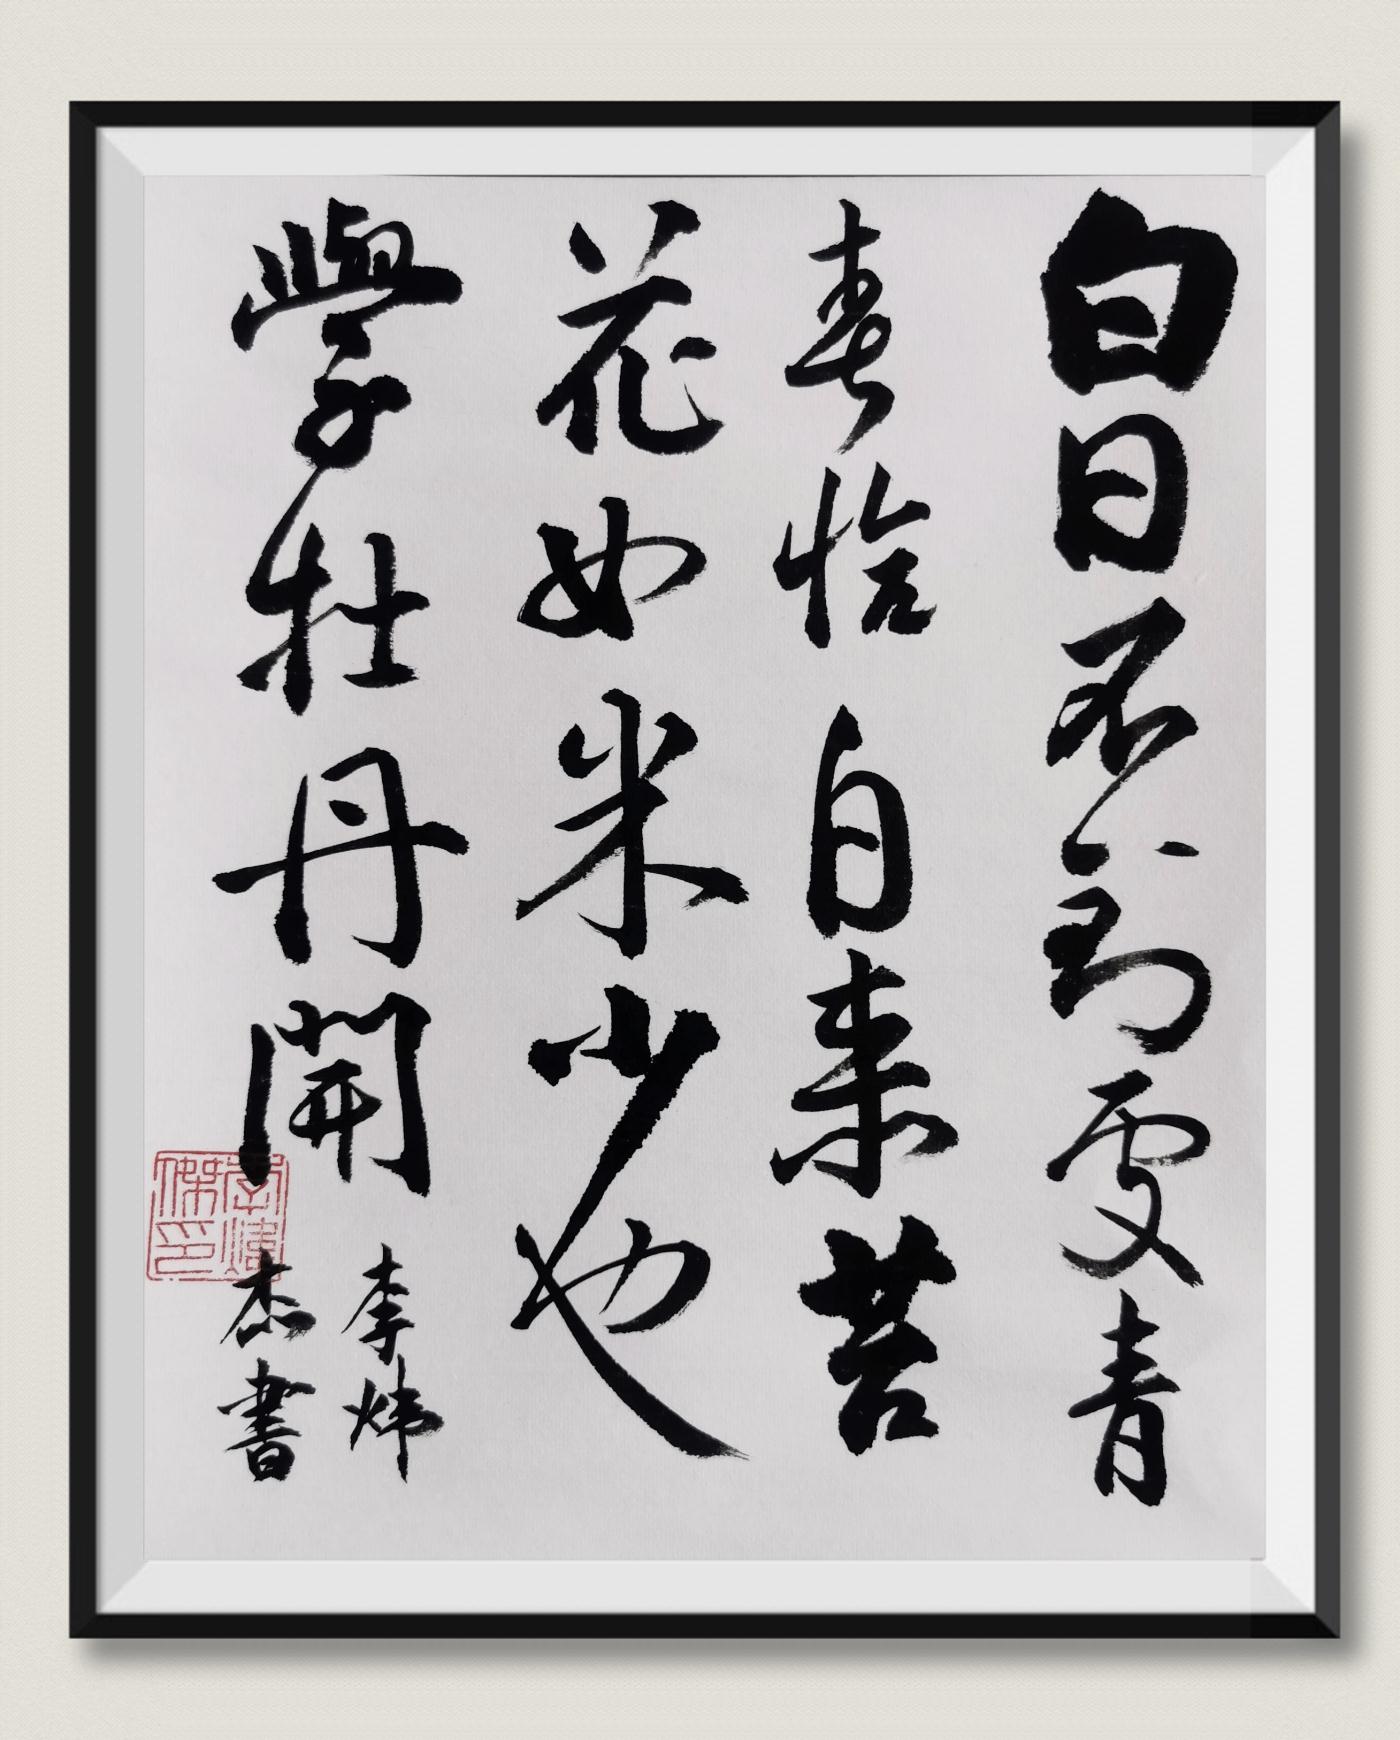 白日不到處青
春恰自來苔
花如米小也
學牡丹開
李炜
杰書
李煒傑印